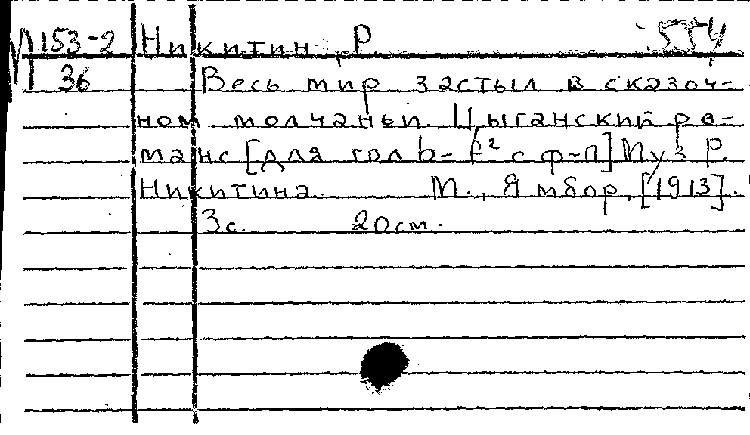 М153-2 Никитин, Р. 554
36 Весь мир застыл в сказоч-
ном молчаньи. Цыганский ро-
манс [для гол. h-f² с ф-п] Муз Р.
Никитина. М., Ямбор, [1913].
3с. 20см.